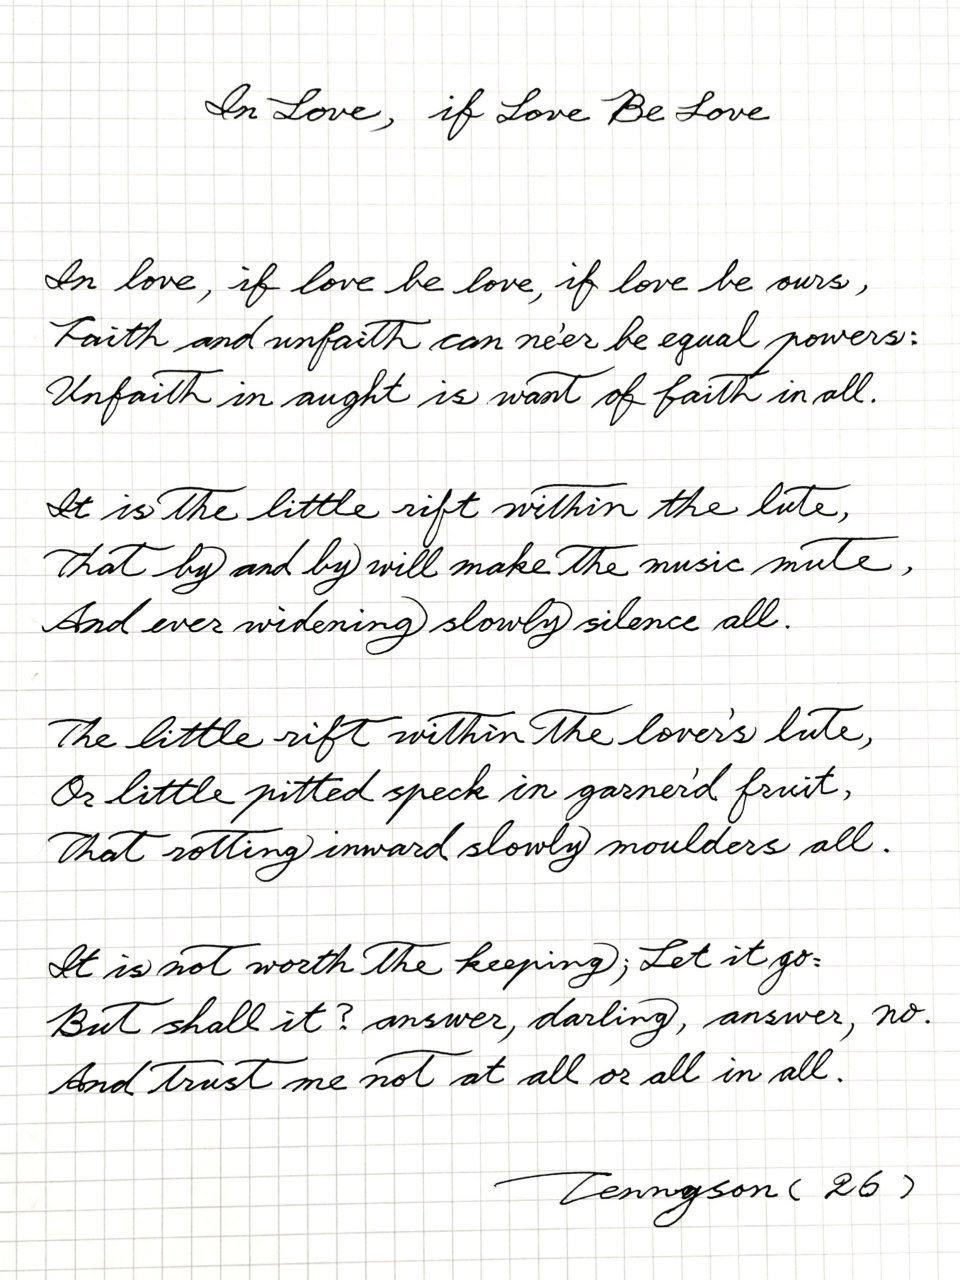 In Love, if Love Be Love
In love, if love be love, if love be ours,
Faith and unfaith can ne'er be equal powers:
Unfaith in aught is want of faith in all.
It is the little rift within the lute,
That by and by will make the music mute,
And ever widening slowly silence all.
The little rift within the lover's lute,
Or little pitted speck in garner'd fruit,
That rotting inward slowly moulders all.
It is not worth the keeping; Let it go:
But shall it? answer, darling, answer, no.
And trust me not at all or all in all.
Tennyson (26)